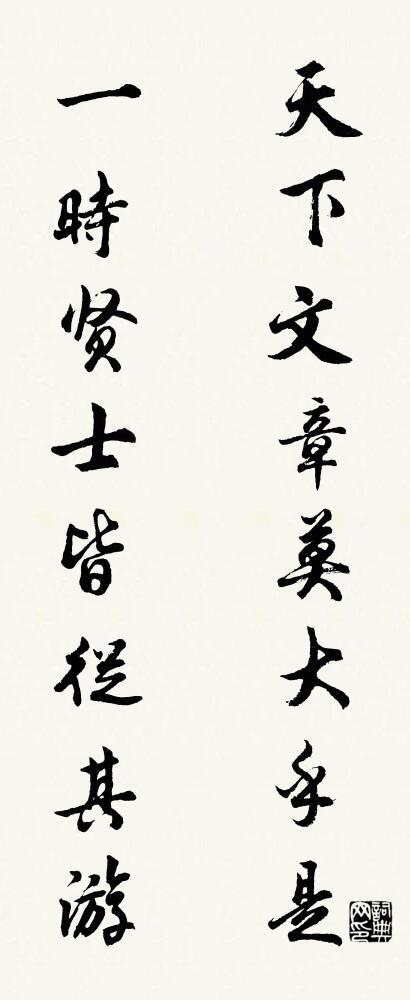 天下文章莫大乎是
一時贤士皆從其游
詞典网印